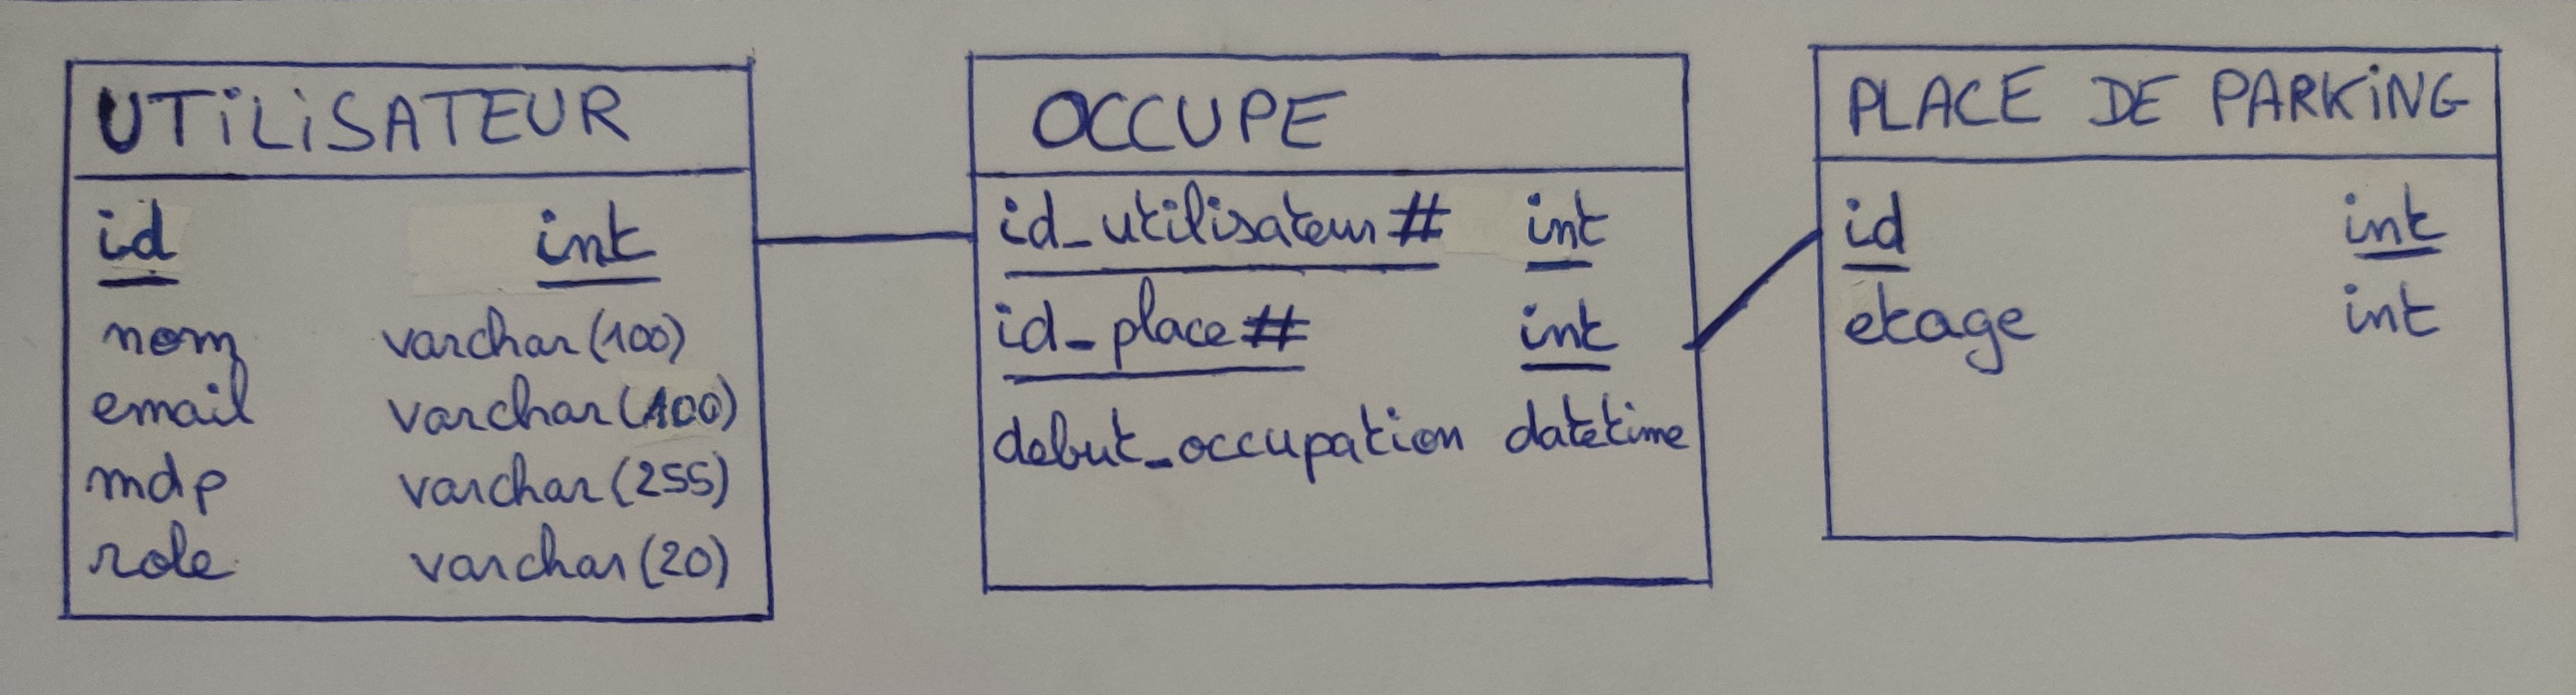 UTiLiSATEUR
id int
nom varchar(100)
email varchar(100)
mdp varchar(255)
role varchar(20)
OCCUPE
id_utilisateur# int
id_place# int
debut_occupation datetime
PLACE DE PARKiNG
id int
etage int